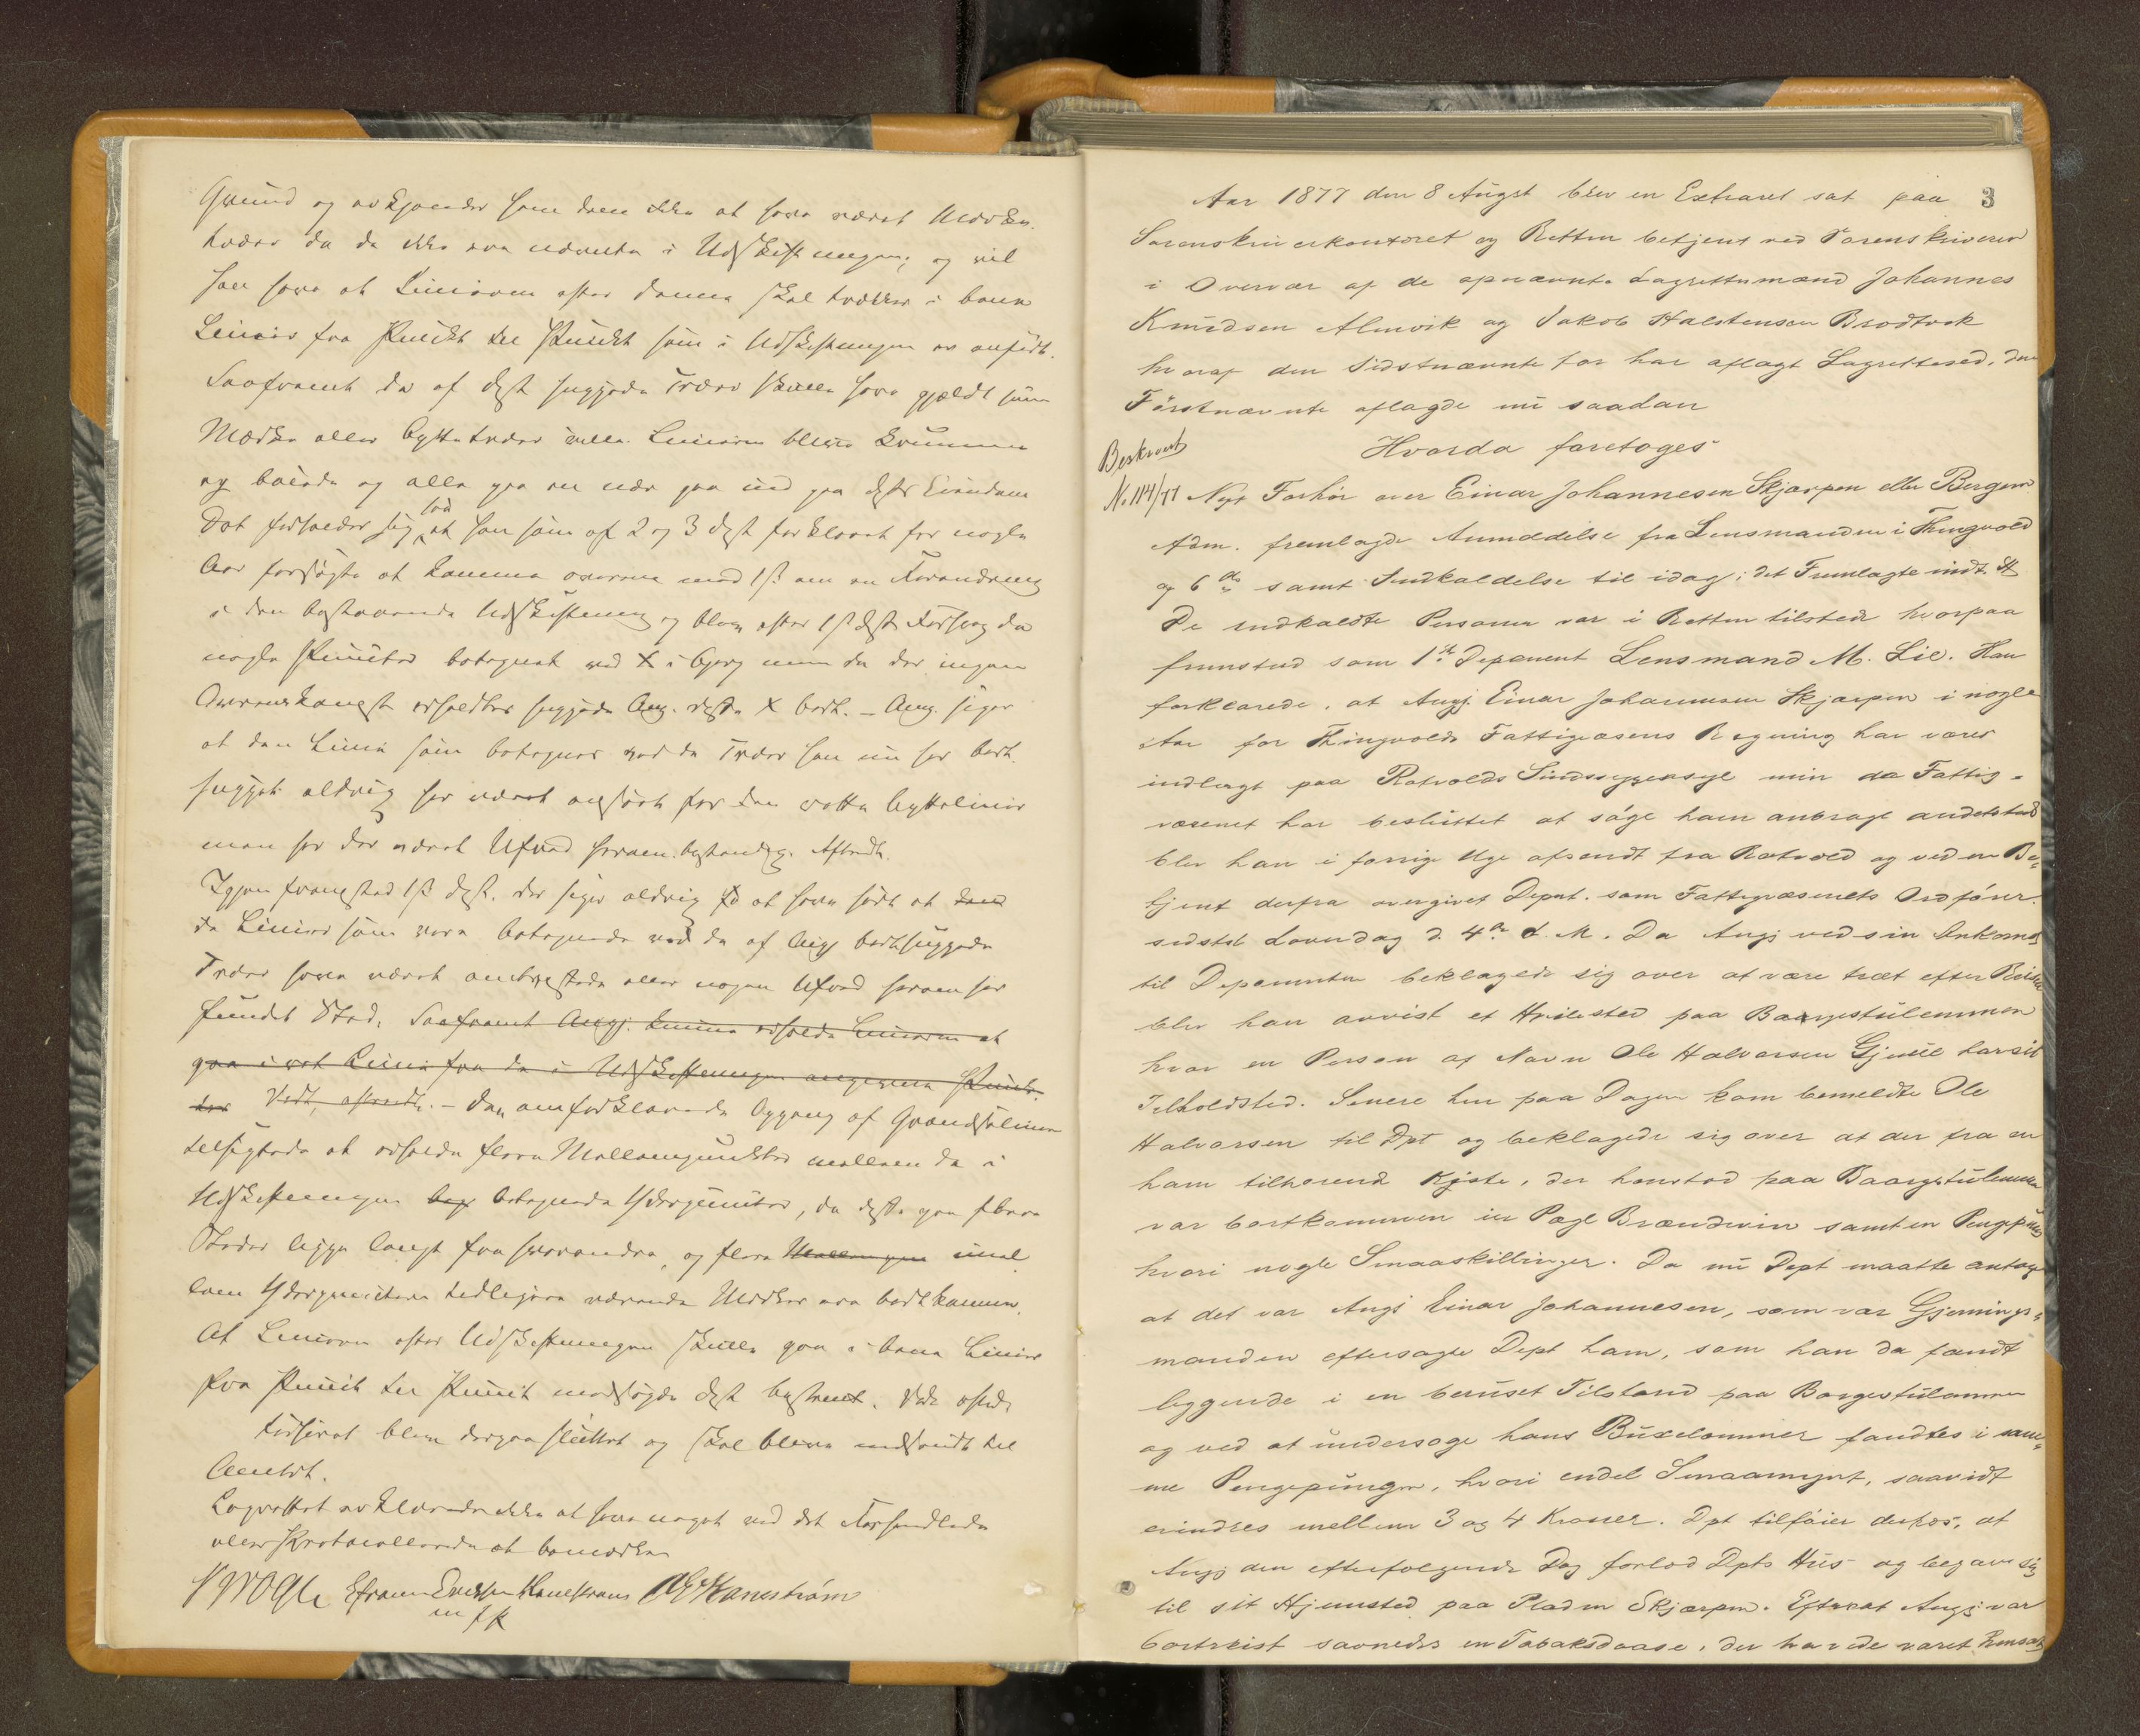 Grund og erkjender han dem ikke at have været Mærke-
træer da de ikke ere nævnte i Udskiftningen; og vil
han have at Linierne efter denne skal trækkes i bene
Linier fra Punkt til Punkt som i Udskiftningen er anført.
Saafremt de af Dept huggede Træer skulle have gjældt som
Mærke eller Byttetræer ville Linierne blive krumme
og boiede og alle gaa ind paa Eiendom
Det forholder sig saa at han som af 2 og 3 Dept forklaret for nogle
Aar forsøgte at komme overens med 1ste om en Forandring
i den bestaaende Udskiftning og blev efter 1ste Depts Forslag da
nogle Punkter betegnet ved X i Bjerg men da der ingen
Overenskomst erholdtes huggede Ang. disse X bort. – Ang. siger
at den Linie som betegnes ved de Træer han nu har bort-
hugget aldrig har været anseet for den rette Byttelinie
men har der været Ufred herom bestandig. Aftraadt.
Igjen fremstod 1ste Dept. der siger aldrig at have hørt at
de Linier som vare betegnede ved de af Angj borthuggede
Træer have været ombestridte eller nogen Ufred herom har
fundet Sted. Saafremt Angj. kunne erholde Linierne at
gaa i ret Linie fra de i Udskiftningen angivne Punk-
ter Vedt, aftraadt. – Den omforklarede Opgang af Grændselinien
tilsigtede at erholde flere Mellempunkter mellem de i
Udskiftningen betegnede Yderpunkter, da disse paa flere
Steder ligge langt fra hverandre, og flere imel
lem Yderpunkterne tidligere værende Mærker ere bortkommen.
At Linierne efter Udskiftningen skulle gaa i bene Linier
fra Punkt til Punkt modsagde Dept bestemt. Vedt aftraadt
Forhøret blev derpaa sluttet og skal blive indsendt til
Amtet.
Lagrettet erklærede ikke at have noget ved det Forhandlede
eller Protocollerede at bemærke

3
Aar 1877 den 8 August blev en Extraret sat paa
Sorenskriverkontoret og Retten betjent ved Sorenskriveren
i Overvær af de opnævnte Lagrettemænd Johannes
Knudsen Almvik og Jakob Halstensen Brodtvok
hvoraf den Sidstnævnte før har aflagt Lagretteed, den
Førstnævnte aflagde nu saadan
Hvorda foretoges
Beskrevet
No 114/77 Nyt Forhør over Einar Johannesen Skjærpen eller Bergem
Adm. fremlagde Anmeldelse fra Lensmanden i Thingvold
af 6 ds samt Indkaldelse til idag; det Fremlagte indt.
De indkaldte Personer var i Retten tilstede hvorpaa
fremstod som 1ste Deponent Lensmand M. Lie. Han
forklarede, at Angj. Einar Johannesen Skjærpen i nogle
Aar for Thingvolds Fattigvæsens Regning har været
indlagt paa Rotvolds Sindssygeasyl men da Fattig-
væsenet har besluttet at søge ham anbragt andetsteds
blev han i forrige Uge afsendt fra Rotvold og ved en Be-
tjent derfra overgivet Depnt. som Fattigvæsenets Ordfører
sidste Løverdag d. 4de d. M. Da Angj ved sin Ankomst
til Deponenten beklagede sig over at være træt efter Reisen
blev han anvist et Hvilested paa Borgestulemmen
hvor en Person af Navn Ole Halvorsen Gjmil har sit
Tilholdsted. Senere hen paa Dagen kom bemeldte Ole
Halvorsen til Dpt og beklagede sig over at der fra en
ham tilhørende Kiste, der henstod paa Borgestulemmen
var bortkommen en Pægl Brændevin samt en Pengepung
hvori nogle Smaaskillinger. Da nu Dept maatte antage
at det var Angj Einar Johannesen, som var Gjernings-
manden eftersøgte Dept ham, som han da fandt
liggende i en beruset Tilstand paa Borgestulemmen
og ved at undersøge hans Buxelommer fandtes i sam-
me Pengepungen, hvori endel Smaamynt, saavidt
erindres mellem 3 og 4 Kroner. Dpt tilføier derhos, at
Angj den efterfølgende Dag forlod Dpts Hus og begav sig
til sit Hjemsted paa Pladsen Skjærpen. Efterat Angj var
bortreist savnedes en Tobaksdaase, der havde været hensat